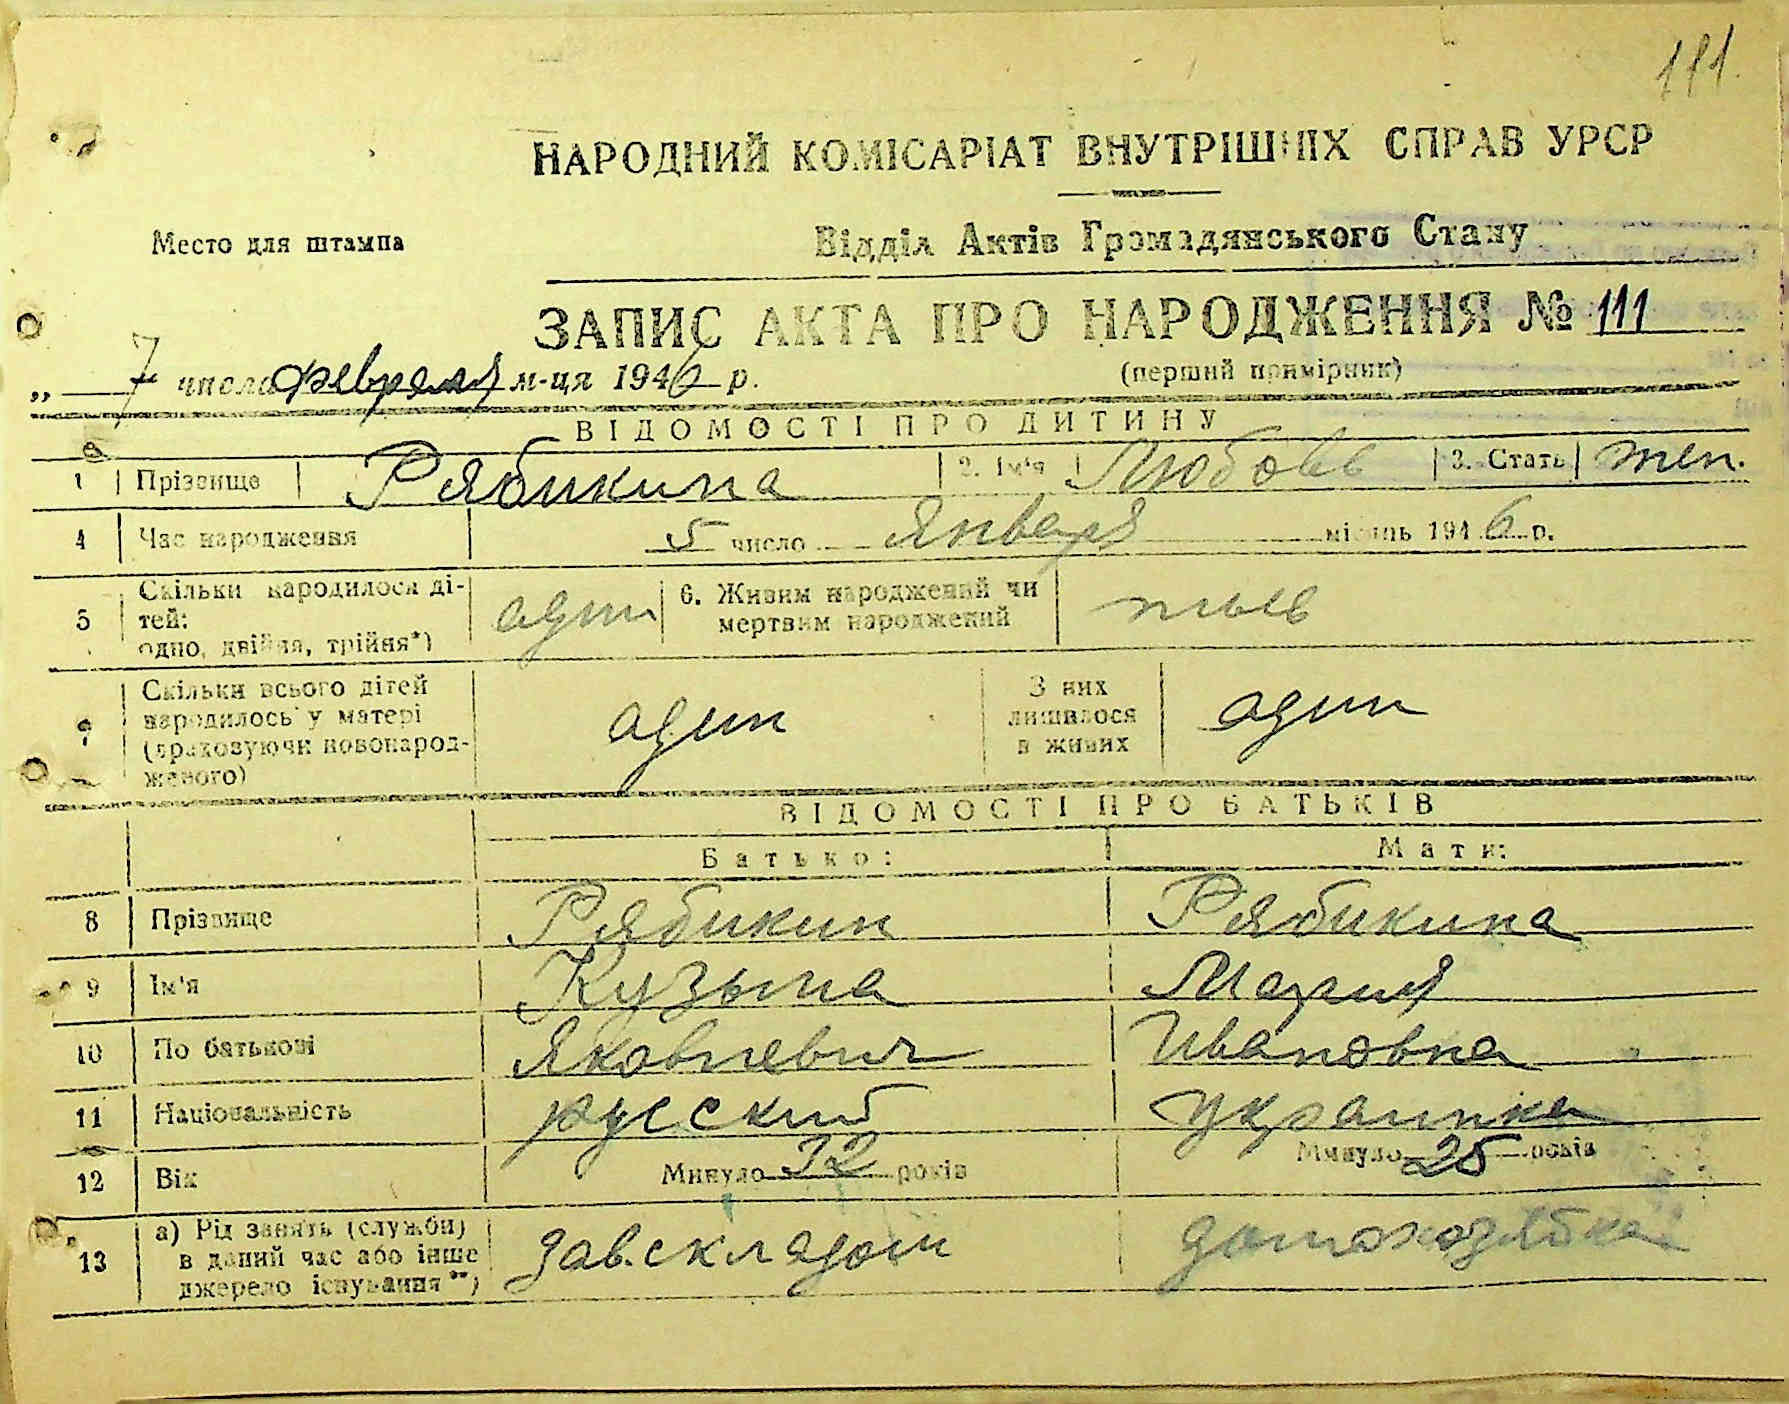 111.
НАРОДНИЙ КОМІСАРІАТ ВНУТРІШНІХ СПРАВ УРСР
Место для штампа
Відділ Актів Громадянського Стану
ЗАПИС АКТА ПРО НАРОДЖЕННЯ № 111
„ 7 числа февраля м-ця 1946 р.
(перший примірник)
ВІДОМОСТІ ПРО ДИТИНУ
1 Прізвище Рябикина 2. Ім'я Любовь 3. Стать жен.
4 Час народження 5 число января місяць 1946 р.
5 Скільки народилося ді-
тей:
одно, двійня, трійня*) один 6. Живим народжений чи
мертвим народжений живые
7 Скільки всього дітей
народилось у матері
(враховуючи новонарод-
женого) один З них
лишилося
в живих один
ВІДОМОСТІ ПРО БАТЬКІВ
Батько: Мати:
8 Прізвище Рябикин Рябикина
9 Ім'я Кузьма Мария
10 По батькові Яковлевич Ивановна
11 Національність русский украинка
12 Вік Минуло 32 років Минуло 25 років
13 а) Рід занять (служби)
в даний час або інше
джерело існування**) зав.складом домохозяйка